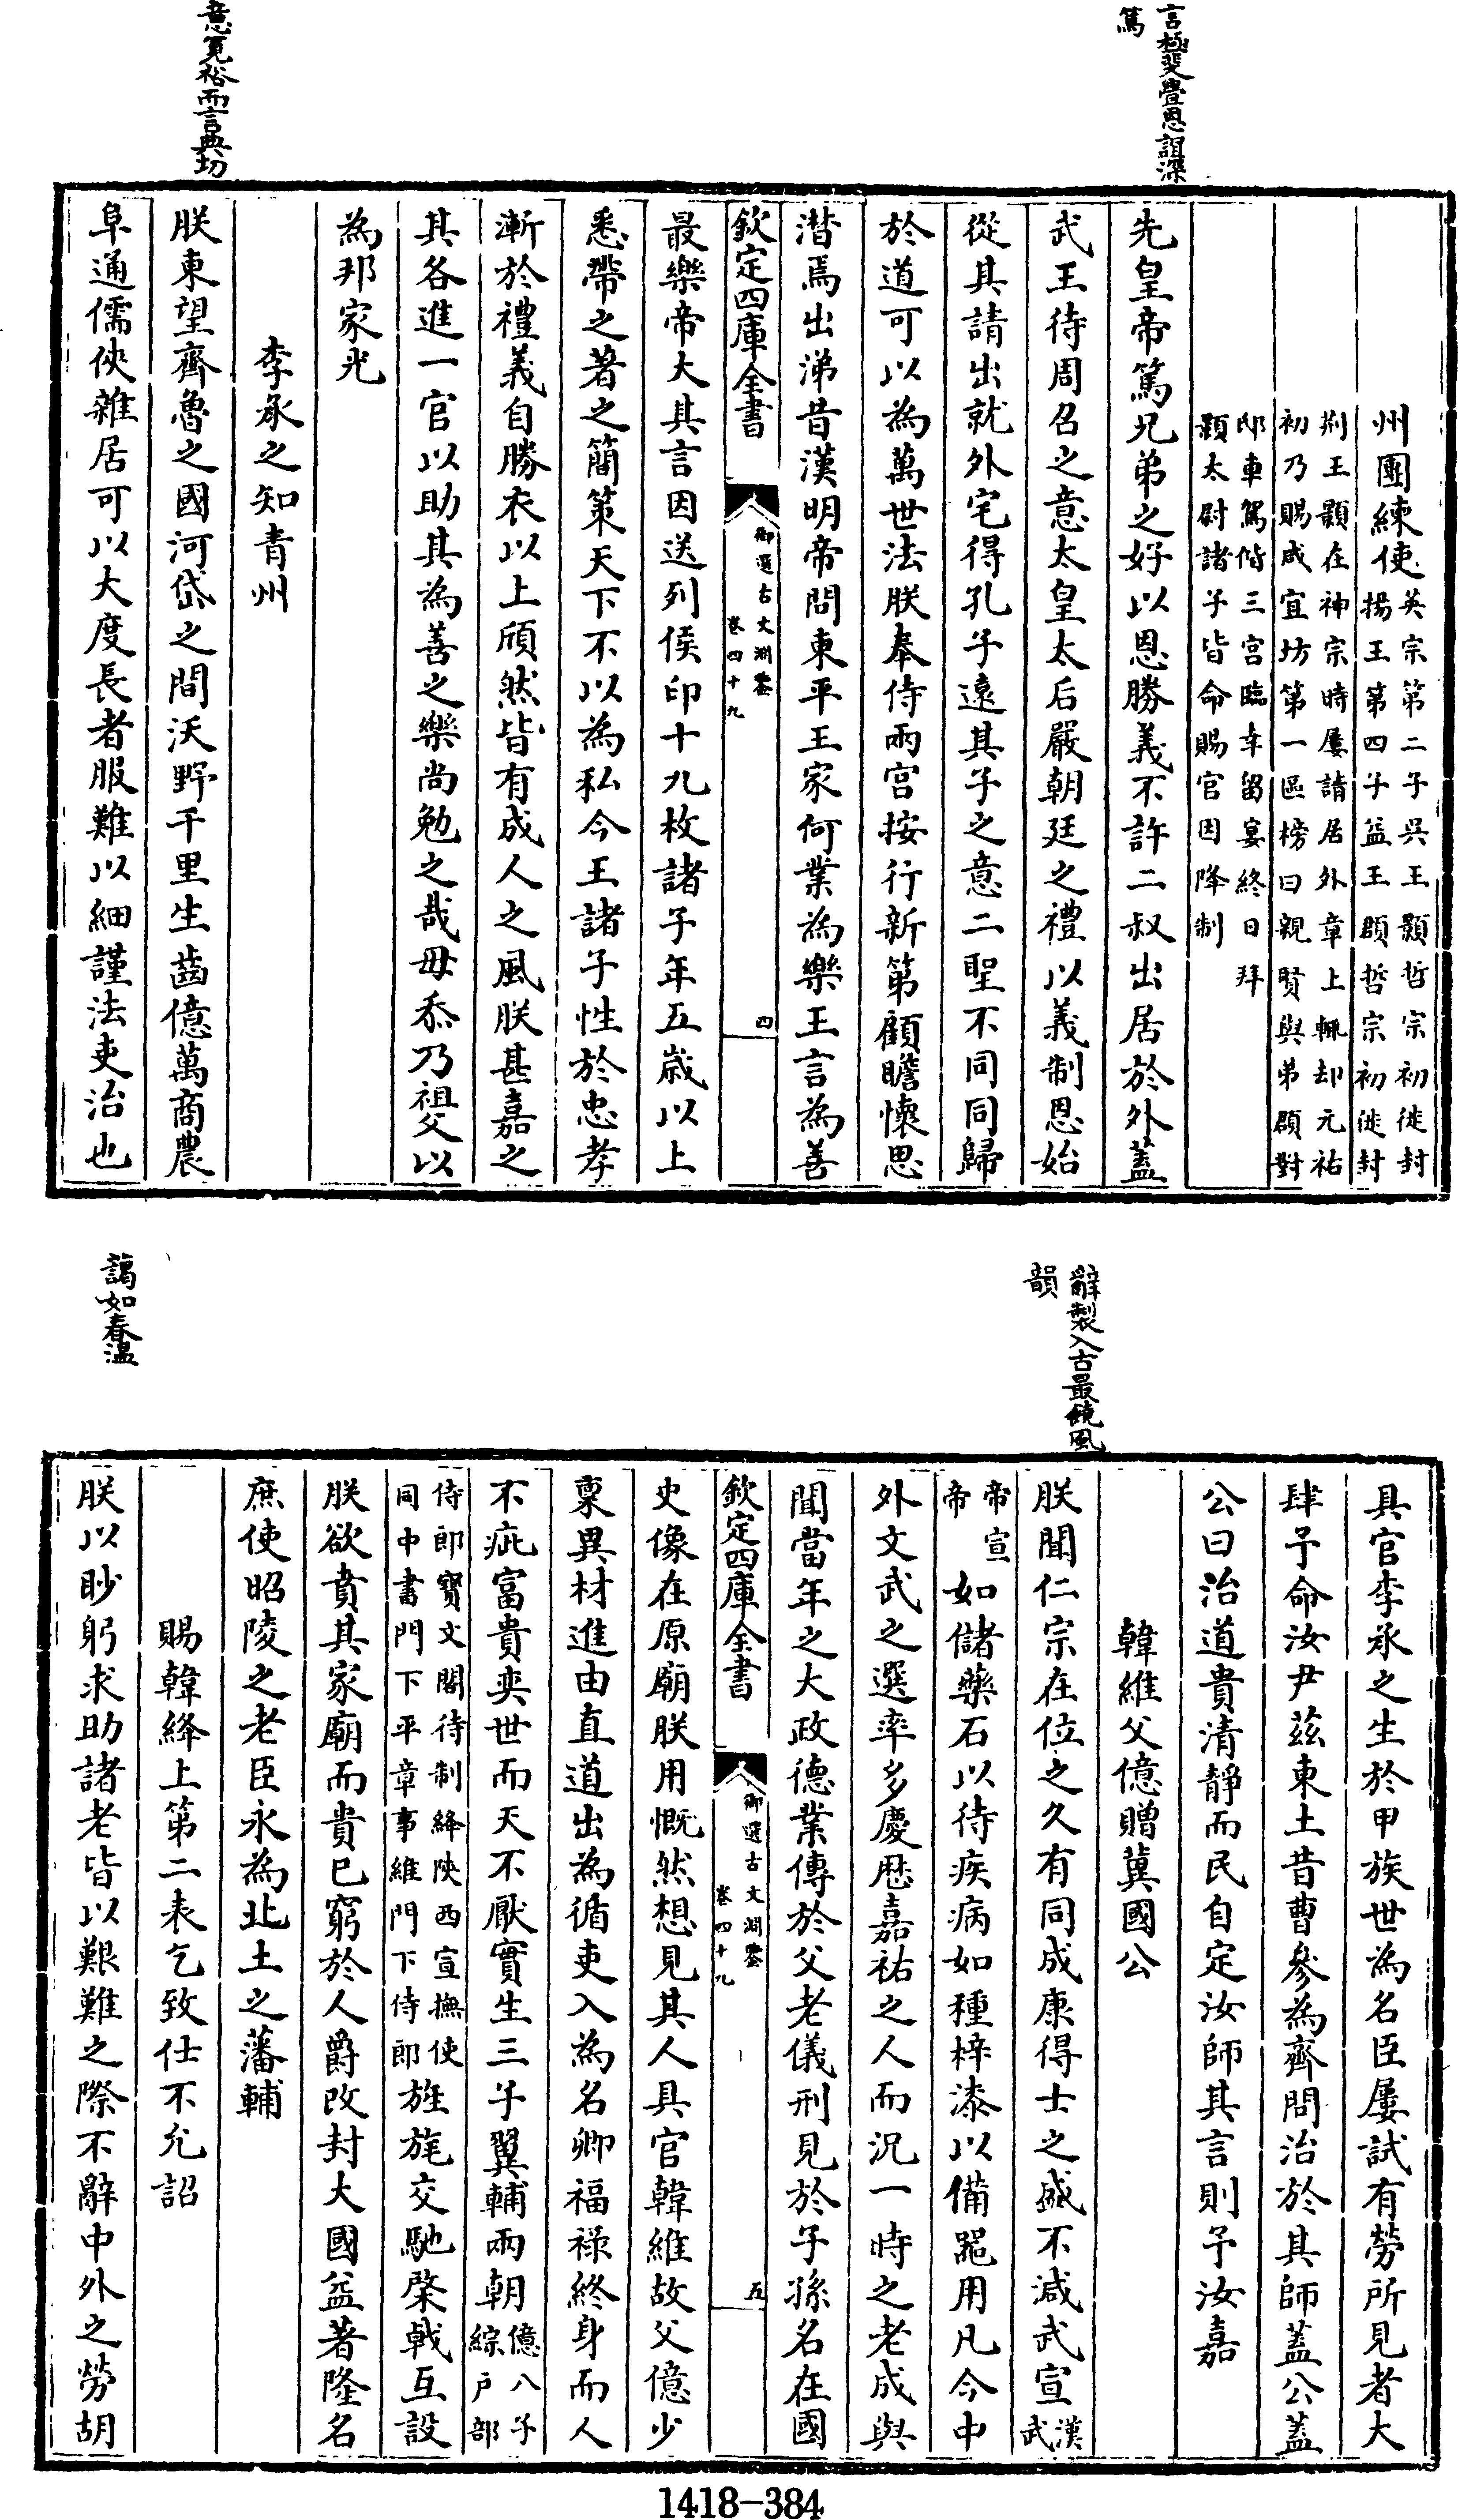 言極斐亹恩誼深
篤
意寛裕而言典切
州團練使英宗第二子吳王顥哲宗初徙封
揚王第四子益王頵哲宗初徙封
荆王顥在神宗時屢請居外章上輒却元祐
初乃賜咸宜坊第一區榜曰親賢與弟頵對
邸車駕偕三宮臨幸留宴終日拜
顥太尉諸子皆命賜官因降制
先皇帝篤兄弟之好以恩勝義不許二叔出居於外蓋
武王待周召之意太皇太后嚴朝廷之禮以義制恩始
從其請出就外宅得孔子遠其子之意二聖不同同歸
於道可以為萬世法朕奉侍兩宮按行新第顧瞻懷思
潸焉出涕昔漢明帝問東平王家何業為樂王言為善
欽定四庫全書
御選古文淵鑒
卷四十九
四
最樂帝大其言因送列侯印十九枚諸子年五歲以上
悉帶之著之簡策天下不以為私今王諸子性於忠孝
漸於禮義自勝衣以上頎然皆有成人之風朕甚嘉之
其各進一官以助其為善之樂尚勉之哉毋忝乃祖父以
為邦家光
李承之知青州
朕東望齊魯之國河岱之間沃野千里生齒億萬商農
阜通儒俠雜居可以大度長者服難以細謹法吏治也
辭製入古最饒風
韻
謁如春溫
具官李承之生於甲族世為名臣屢試有勞所見者大
肆予命汝尹茲東土昔曹參為齊問治於其師蓋公蓋
公曰治道貴清靜而民自定汝師其言則予汝嘉
韓維父億贈冀國公
朕聞仁宗在位之久有同成康得士之盛不減武宣漢
武
帝宣
帝如儲藥石以待疾病如種梓漆以備器用凡今中
外文武之選率多慶歷嘉祐之人而況一時之老成與
聞當年之大政德業傳於父老儀刑見於子孫名在國
欽定四庫全書
御選古文淵鑒
卷四十九
五
史像在原廟朕用慨然想見其人具官韓維故父億少
稟異材進由直道出為循吏入為名卿福祿終身而人
不疵富貴奕世而天不厭實生三子翼輔兩朝億八子
綜戶部
侍郎寶文閣待制絳陝西宣撫使
同中書門下平章事維門下侍郎旌旄交馳棨戟互設
朕欲賁其家廟而貴已窮於人爵改封大國益著隆名
庶使昭陵之老臣永為北土之藩輔
賜韓絳上第二表乞致仕不允詔
朕以眇躬求助諸老皆以艱難之際不辭中外之勞胡
1418-384